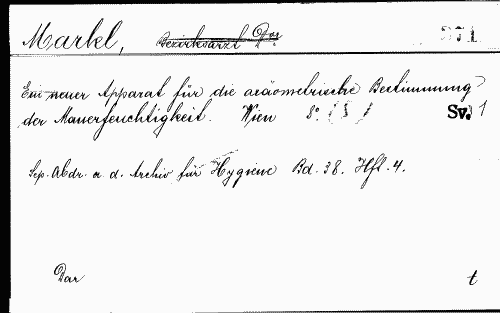 Markl, Bezirksarzt Dr
Ein neuer Apparat für die aräometrische Bestimmung
der Mauerfeuchtigkeit. Wien 8° ( S ) Sv. 1
Sep. Abdr. a. d. Archiv für Hygiene Bd. 38. Hft. 4.
Dar t